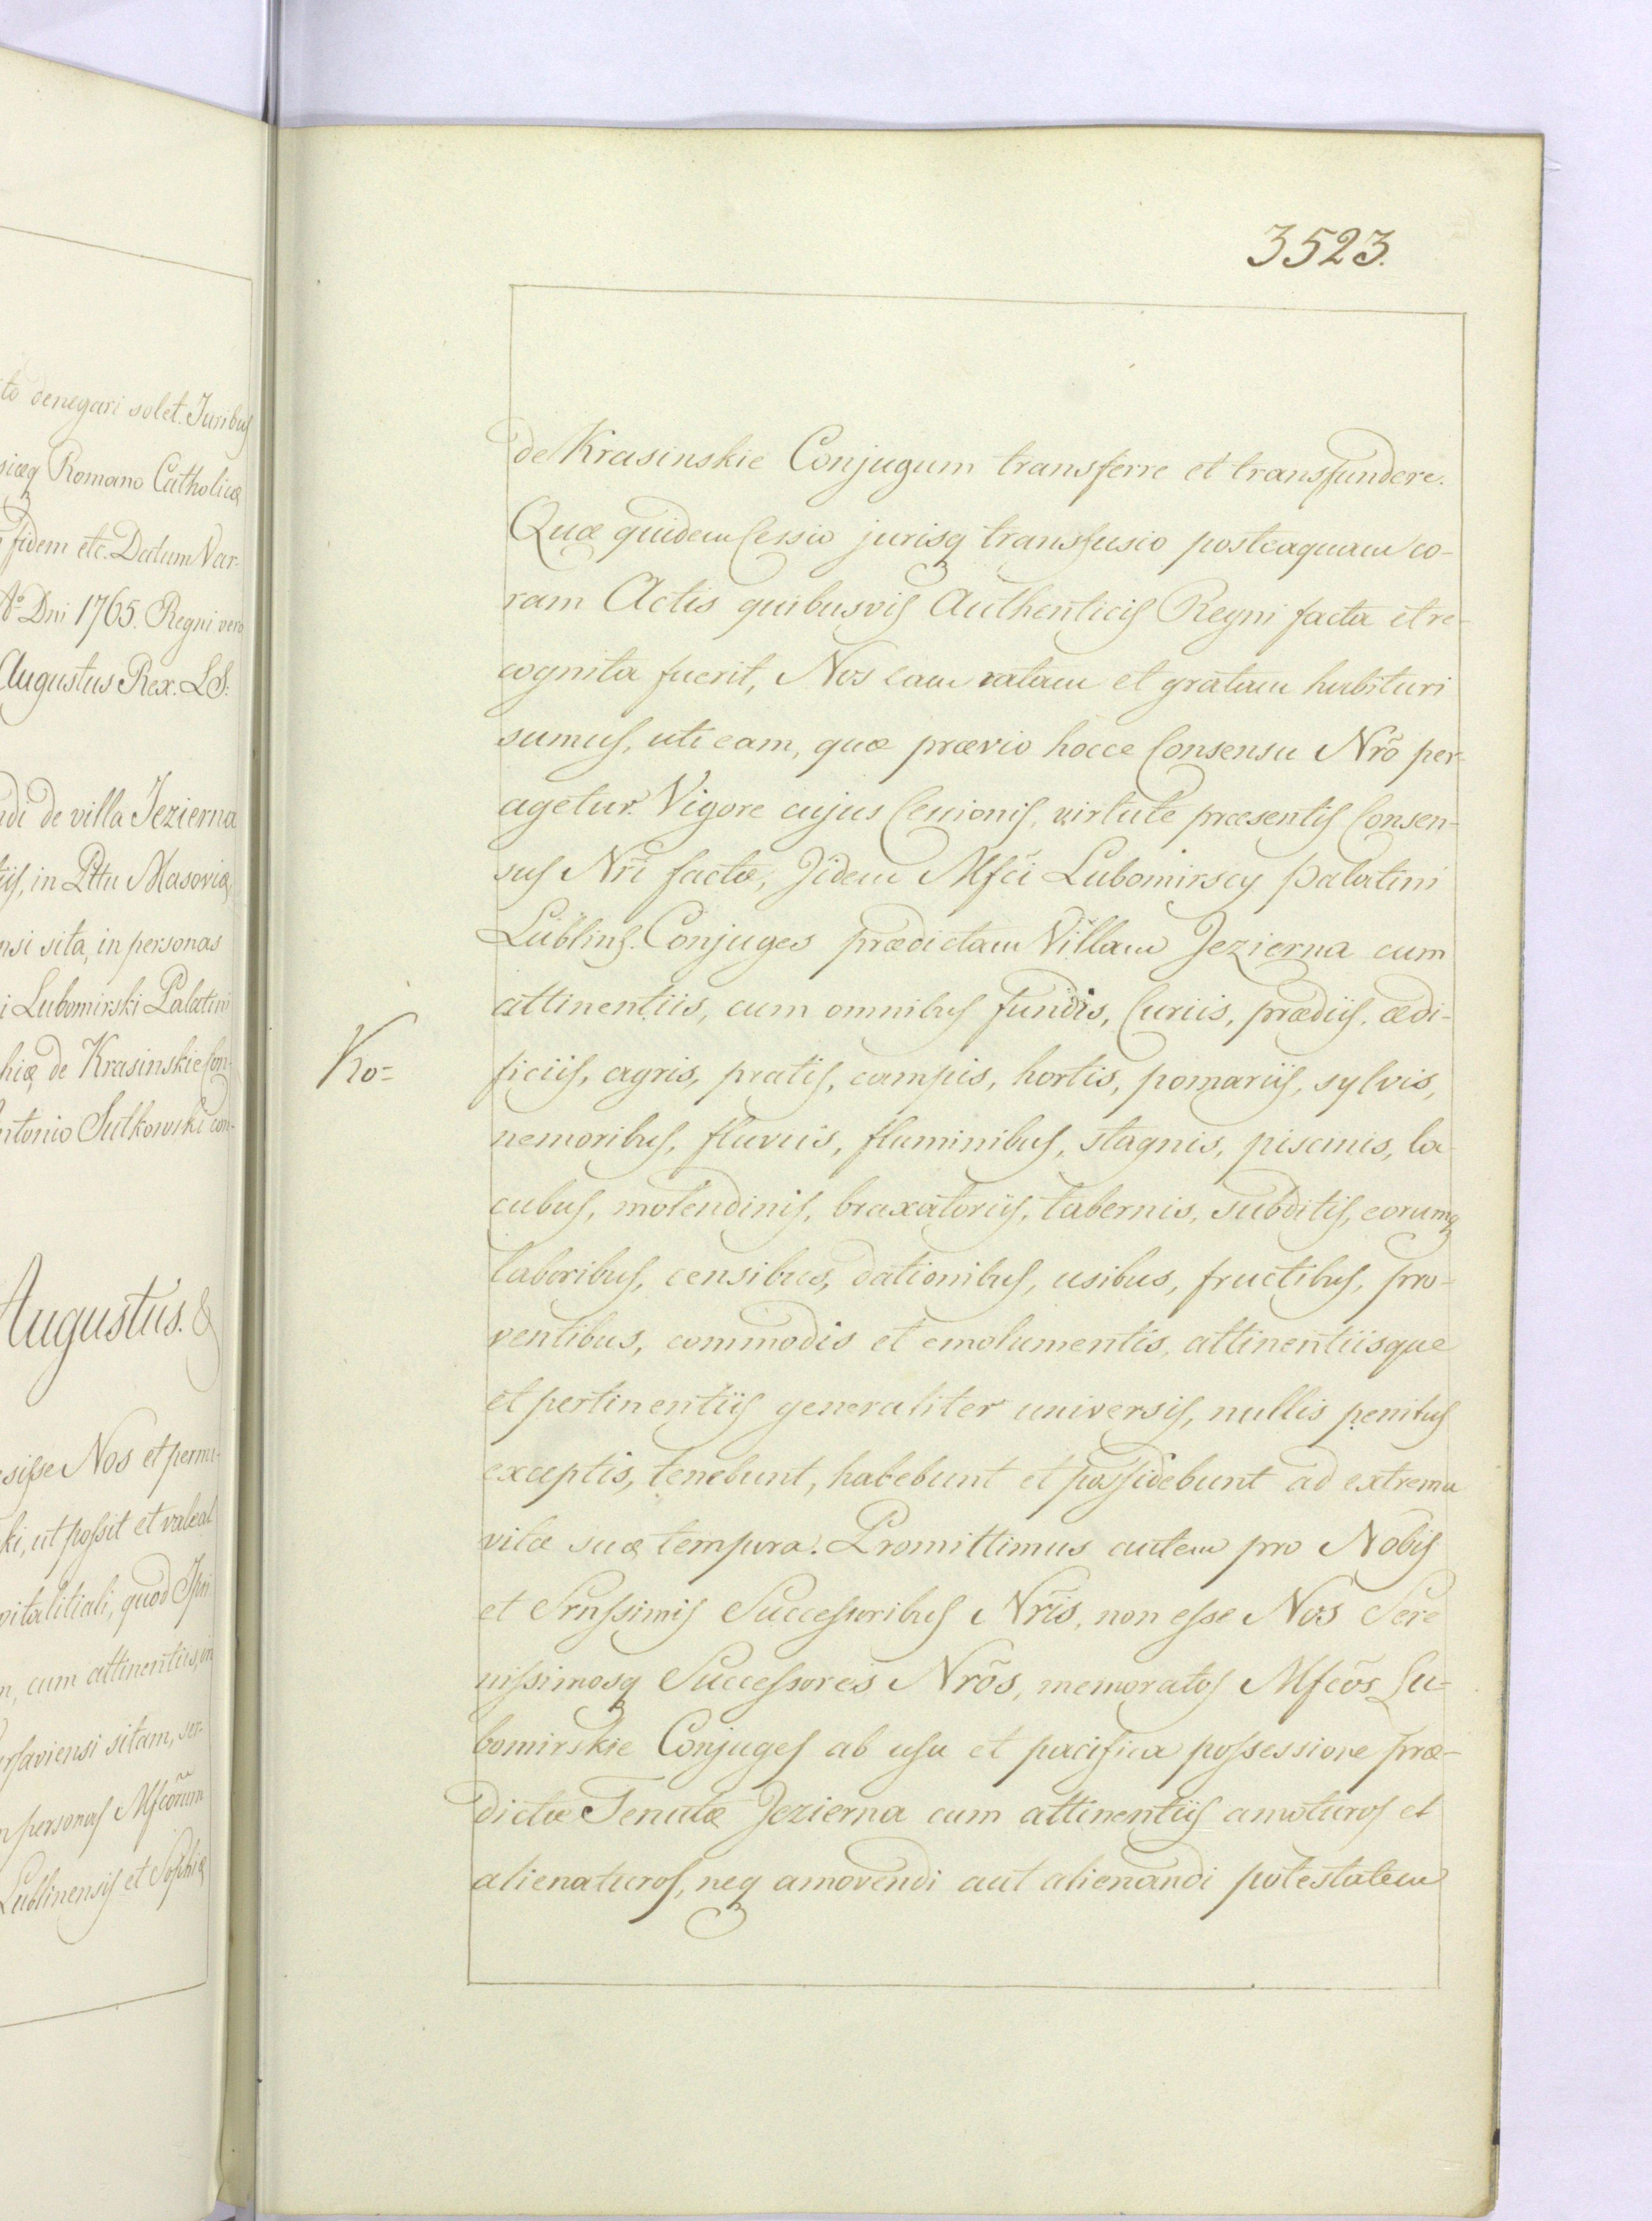 to denegari solet. Juribus
siæq Romano Catholicæ
fidem etc. Datum Var-
Aº Dni 1765. Regni vero
Augustus Rex. LS:
di de villa Jezierna
iis, in Pttu Masoviæ
nsi sita, in personas
i Lubomirski Palatini
hiæ de Krasinskie Con-
ntonio Sulkowski con-
Augustus. &
sisse Nos et permi-
ki, ut possit et valeat
vitalitiali, quod Ipsi
m, cum attinentiis, in
rsaviensi sitam, ser-
n personas Mfcorum
Lublinensis et Sophiæ
3523.
de Krasinskie Conjugum transferre et transfundere.
Quæ quidem Cessio jurisq transfusio posteaquam co-
ram Actis quibusvis Authenticis Regni facta et re-
cognita fuerit, Nos eam ratam et gratam habituri
sumus, uti eam, quæ prævio hocce Consensu Nrõ per-
agetur. Vigore cujus Cessionis, virtute præsentis Consen-
sus Nrĩ factæ, Jidem Mfcĩ Lubomirscy Palatini
Lublins. Conjuges prædictam Villam Jezierna cum
attinentiis, cum omnibus fundis, Curiis, prædiis, ædi-
Ko=
ficiis, agris, pratis, campis, hortis, pomariis, sylvis,
nemoribus, fluviis, fluminibus, stagnis, piscinis, la-
cubus, molendinis, braxatoriis, tabernis, subditis, eorumq
laboribus, censibus, dationibus, usibus, fructibus, pro-
ventibus, commodis et emolumentis, attinentiisque
et pertinentiis generaliter universis, nullis penitus
exceptis, tenebunt, habebunt et possidebunt ad extrema
vitæ suæ tempora. Promittimus autem pro Nobis
et Srnssimis Successoribus Nrĩs, non esse Nos Sere
nissimosq Successores Nrõs, memoratos Mfcõs Lu-
bomirskie Conjuges ab usu et pacifica possessione præ-
dictæ Tenutæ Jezierna cum attinentiis amoturos et
alienaturos, neq amovendi aut alienandi potestatem